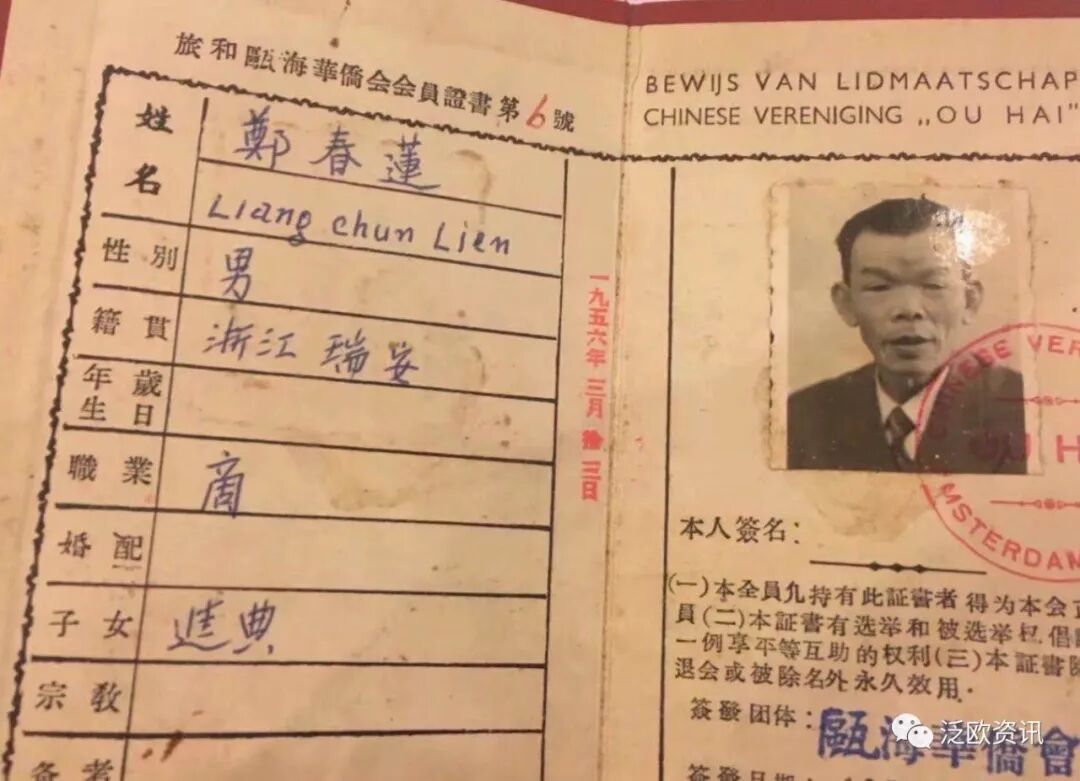 旅和甌海華僑会会員證書第6號
姓名
鄭春蓮
Liang chun Lien
性別
男
籍貫
浙江瑞安
年歲
生日
職業
商
婚配
子女
進典
宗教
备考
一九五六年三月拾三日
BEWIJS VAN LIDMAATSCHAP
CHINESE VERENIGING „OU HAI"
CHINESE VER
OU H
AMSTERDAM
本人簽名：
(一)本全員允持有此証書者得为本会
員(二)本証書有选举和被选举权倡
一例享平等互助的权利(三)本証書
退会或被除名外永久效用.
簽發团体：
甌海華僑會
簽發日期：
泛欧资讯